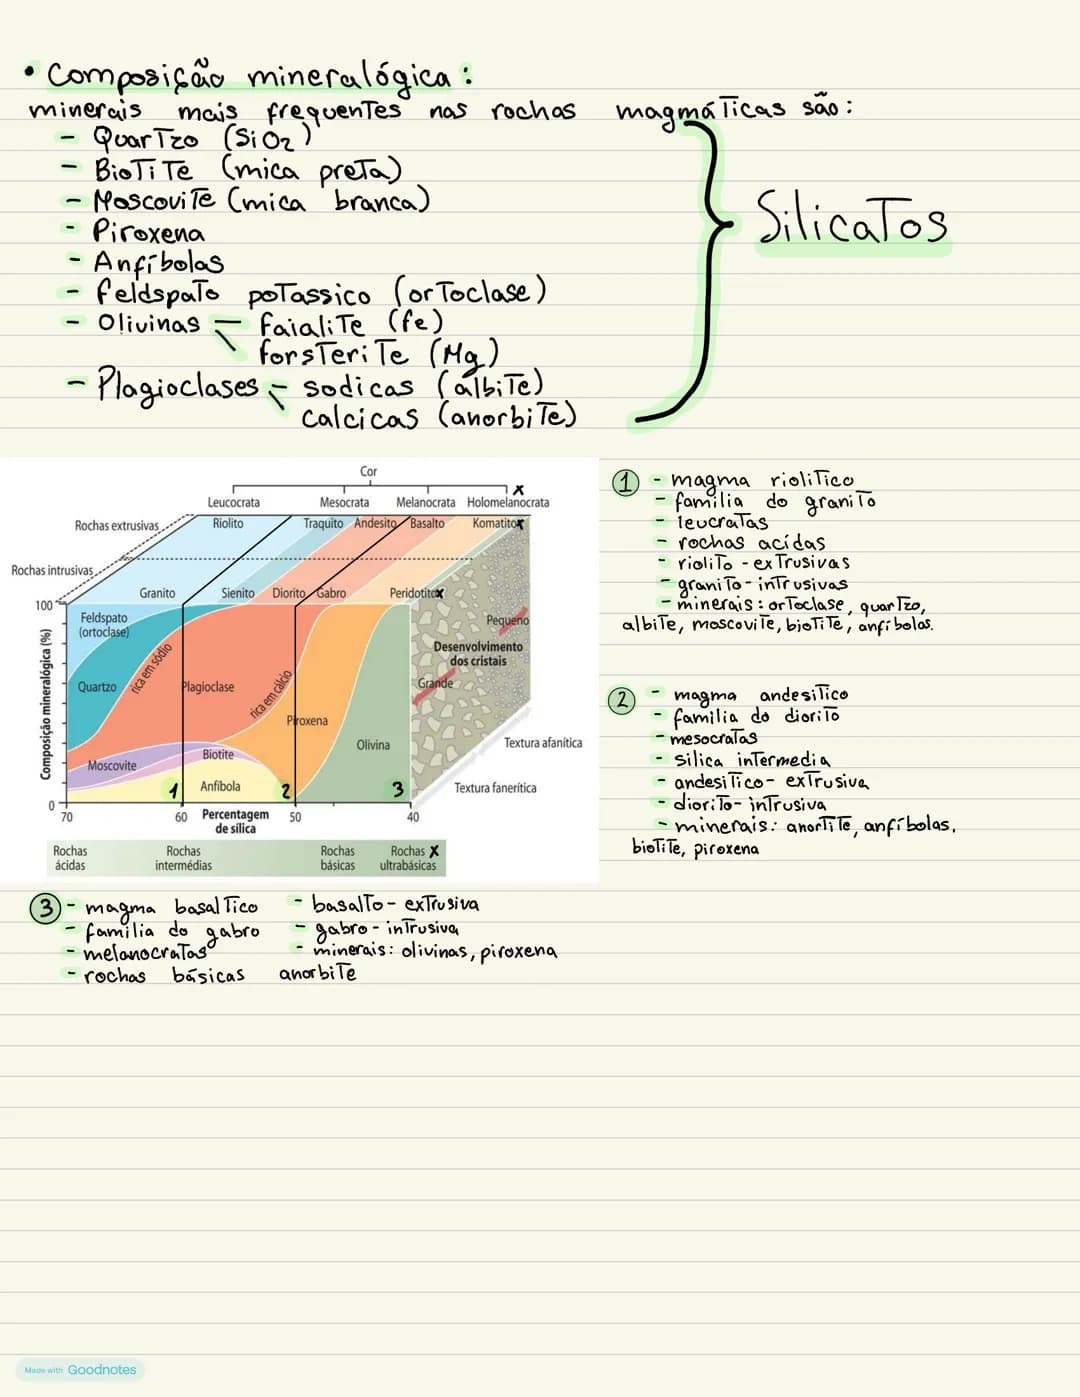 • Composição mineralógica:
minerais mais frequentes nas rochas magmáticas são:
- Quartzo (SiO2)
- Biotite (mica preta)
- Moscovite (mica branca)
- Piroxena
- Anfíbolas
- feldspato potassico (ortoclase)
- Olivinas faialite (fe)
forsterite (Mg)
- Plagioclases sodicas (albite)
calcicas (anorbite)
Silicatos
Cor
Leucocrata Mesocrata Melanocrata Holomelanocrata x
Rochas extrusivas Riolito Traquito Andesito Basalto Komatito x
Rochas intrusivas
Granito Sienito Diorito Gabro Peridotito x
100
Feldspato
(ortoclase)
Quartzo
rica em sódio
Plagioclase
rica em cálcio
Piroxena
Olivina
Moscovite
Biotite
Anfíbola
1 2 3
Pequeno
Desenvolvimento
dos cristais
Grande
Textura afanítica
Textura fanerítica
Composição mineralógica (%)
0
70 60 Percentagem 50 40
de sílica
Rochas Rochas Rochas Rochas x
ácidas intermédias básicas ultrabásicas
1 - magma riolitico
- familia do granito
- leucratas
- rochas acidas
- riolito - extrusivas
- granito - intrusivas
- minerais: ortoclase, quartzo,
albite, moscovite, biotite, anfibolas.
2 - magma andesitico
- familia do diorito
- mesocratas
- silica intermedia
- andesitico - extrusiva
- diorito - intrusiva
- minerais: anortite, anfíbolas,
biotite, piroxena
3 - magma basaltico
- familia do gabro
- melanocratas
- rochas básicas
- basalto - extrusiva
- gabro - intrusiva
- minerais: olivinas, piroxena
anorbite
Made with Goodnotes